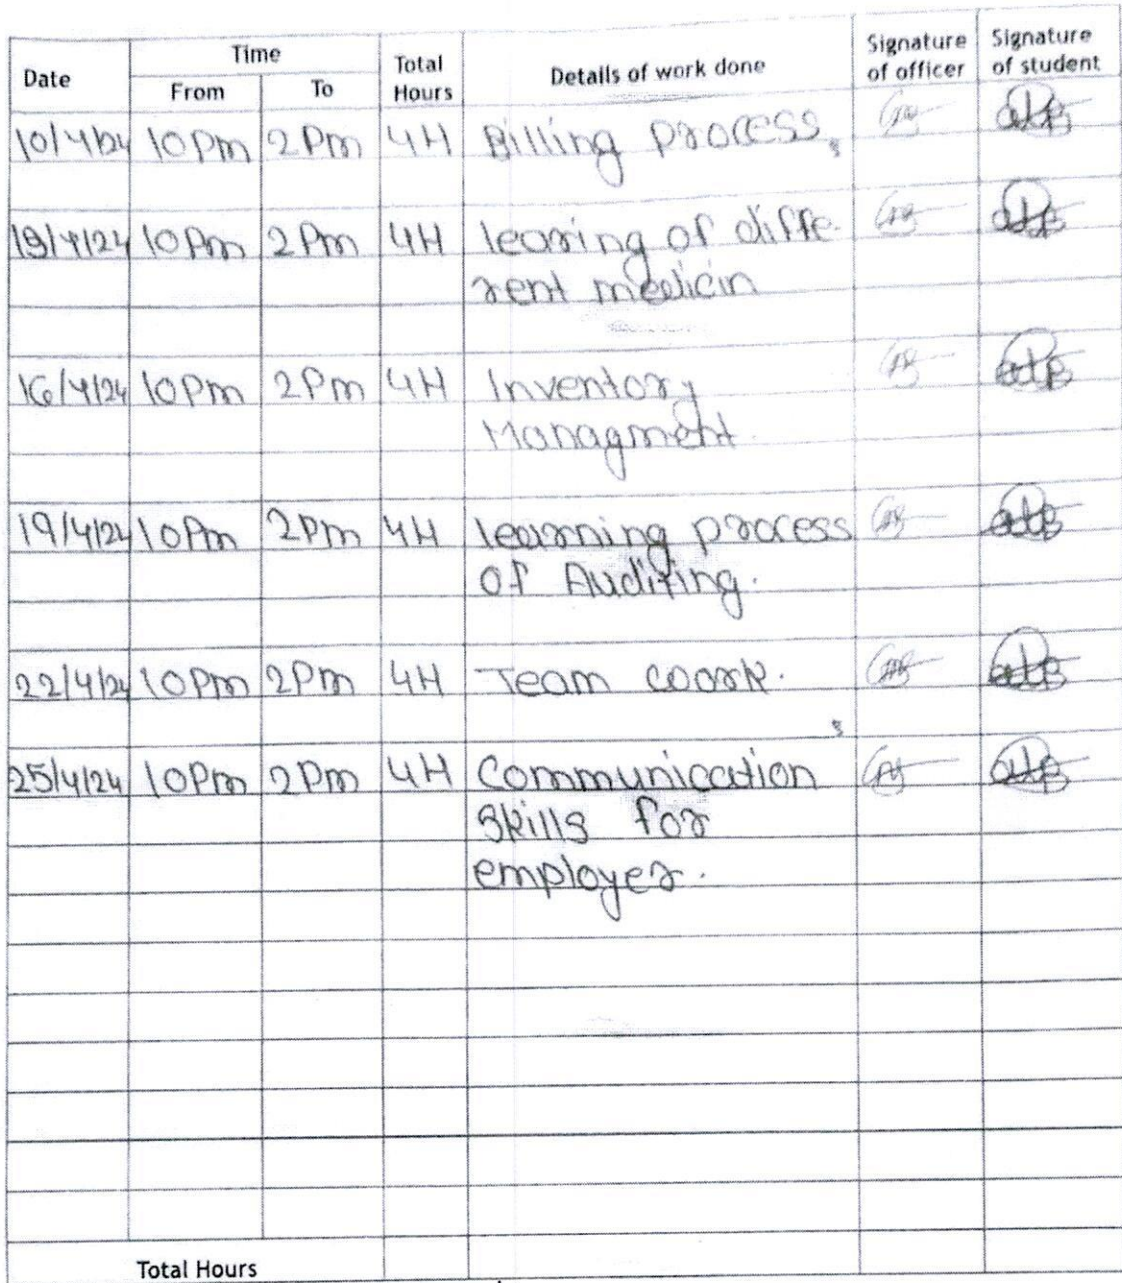 Date Time Total Hours Details of work done Signature of officer Signature of student
From To
10/4/24 10Pm 2Pm 4H Billing process.
13/4/24 10Pm 2Pm 4H learing of diffe-
rent medicin
16/4/24 10Pm 2Pm 4H Inventory
Managment.
19/4/24 10Pm 2Pm 4H learning process
of Auditing.
22/4/24 10Pm 2Pm 4H Team work.
25/4/24 10Pm 2Pm 4H Communication
skills for
employer.
Total Hours